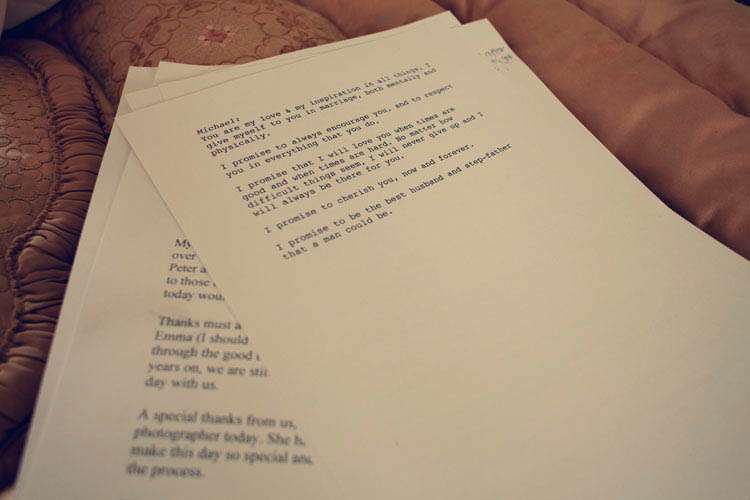 Michael;
You are my love & my inspiration in all things. I
give myself to you in marriage, both mentally and
physically.
I promise to always encourage you, and to respect
you in everything that you do.
I promise that I will love you when times are
good and when times are hard. No matter how
difficult things seem, I will never give up and I
will always be there for you.
I promise to cherish you, now and forever.
I promise to be the best husband and step-father
that a man could be.
My
over
Peter a
to those
today wou
Thanks must a
Emma (I should
through the good
years on, we are sti
day with us.
A special thanks from us,
photographer today. She h
make this day so special and
the process.